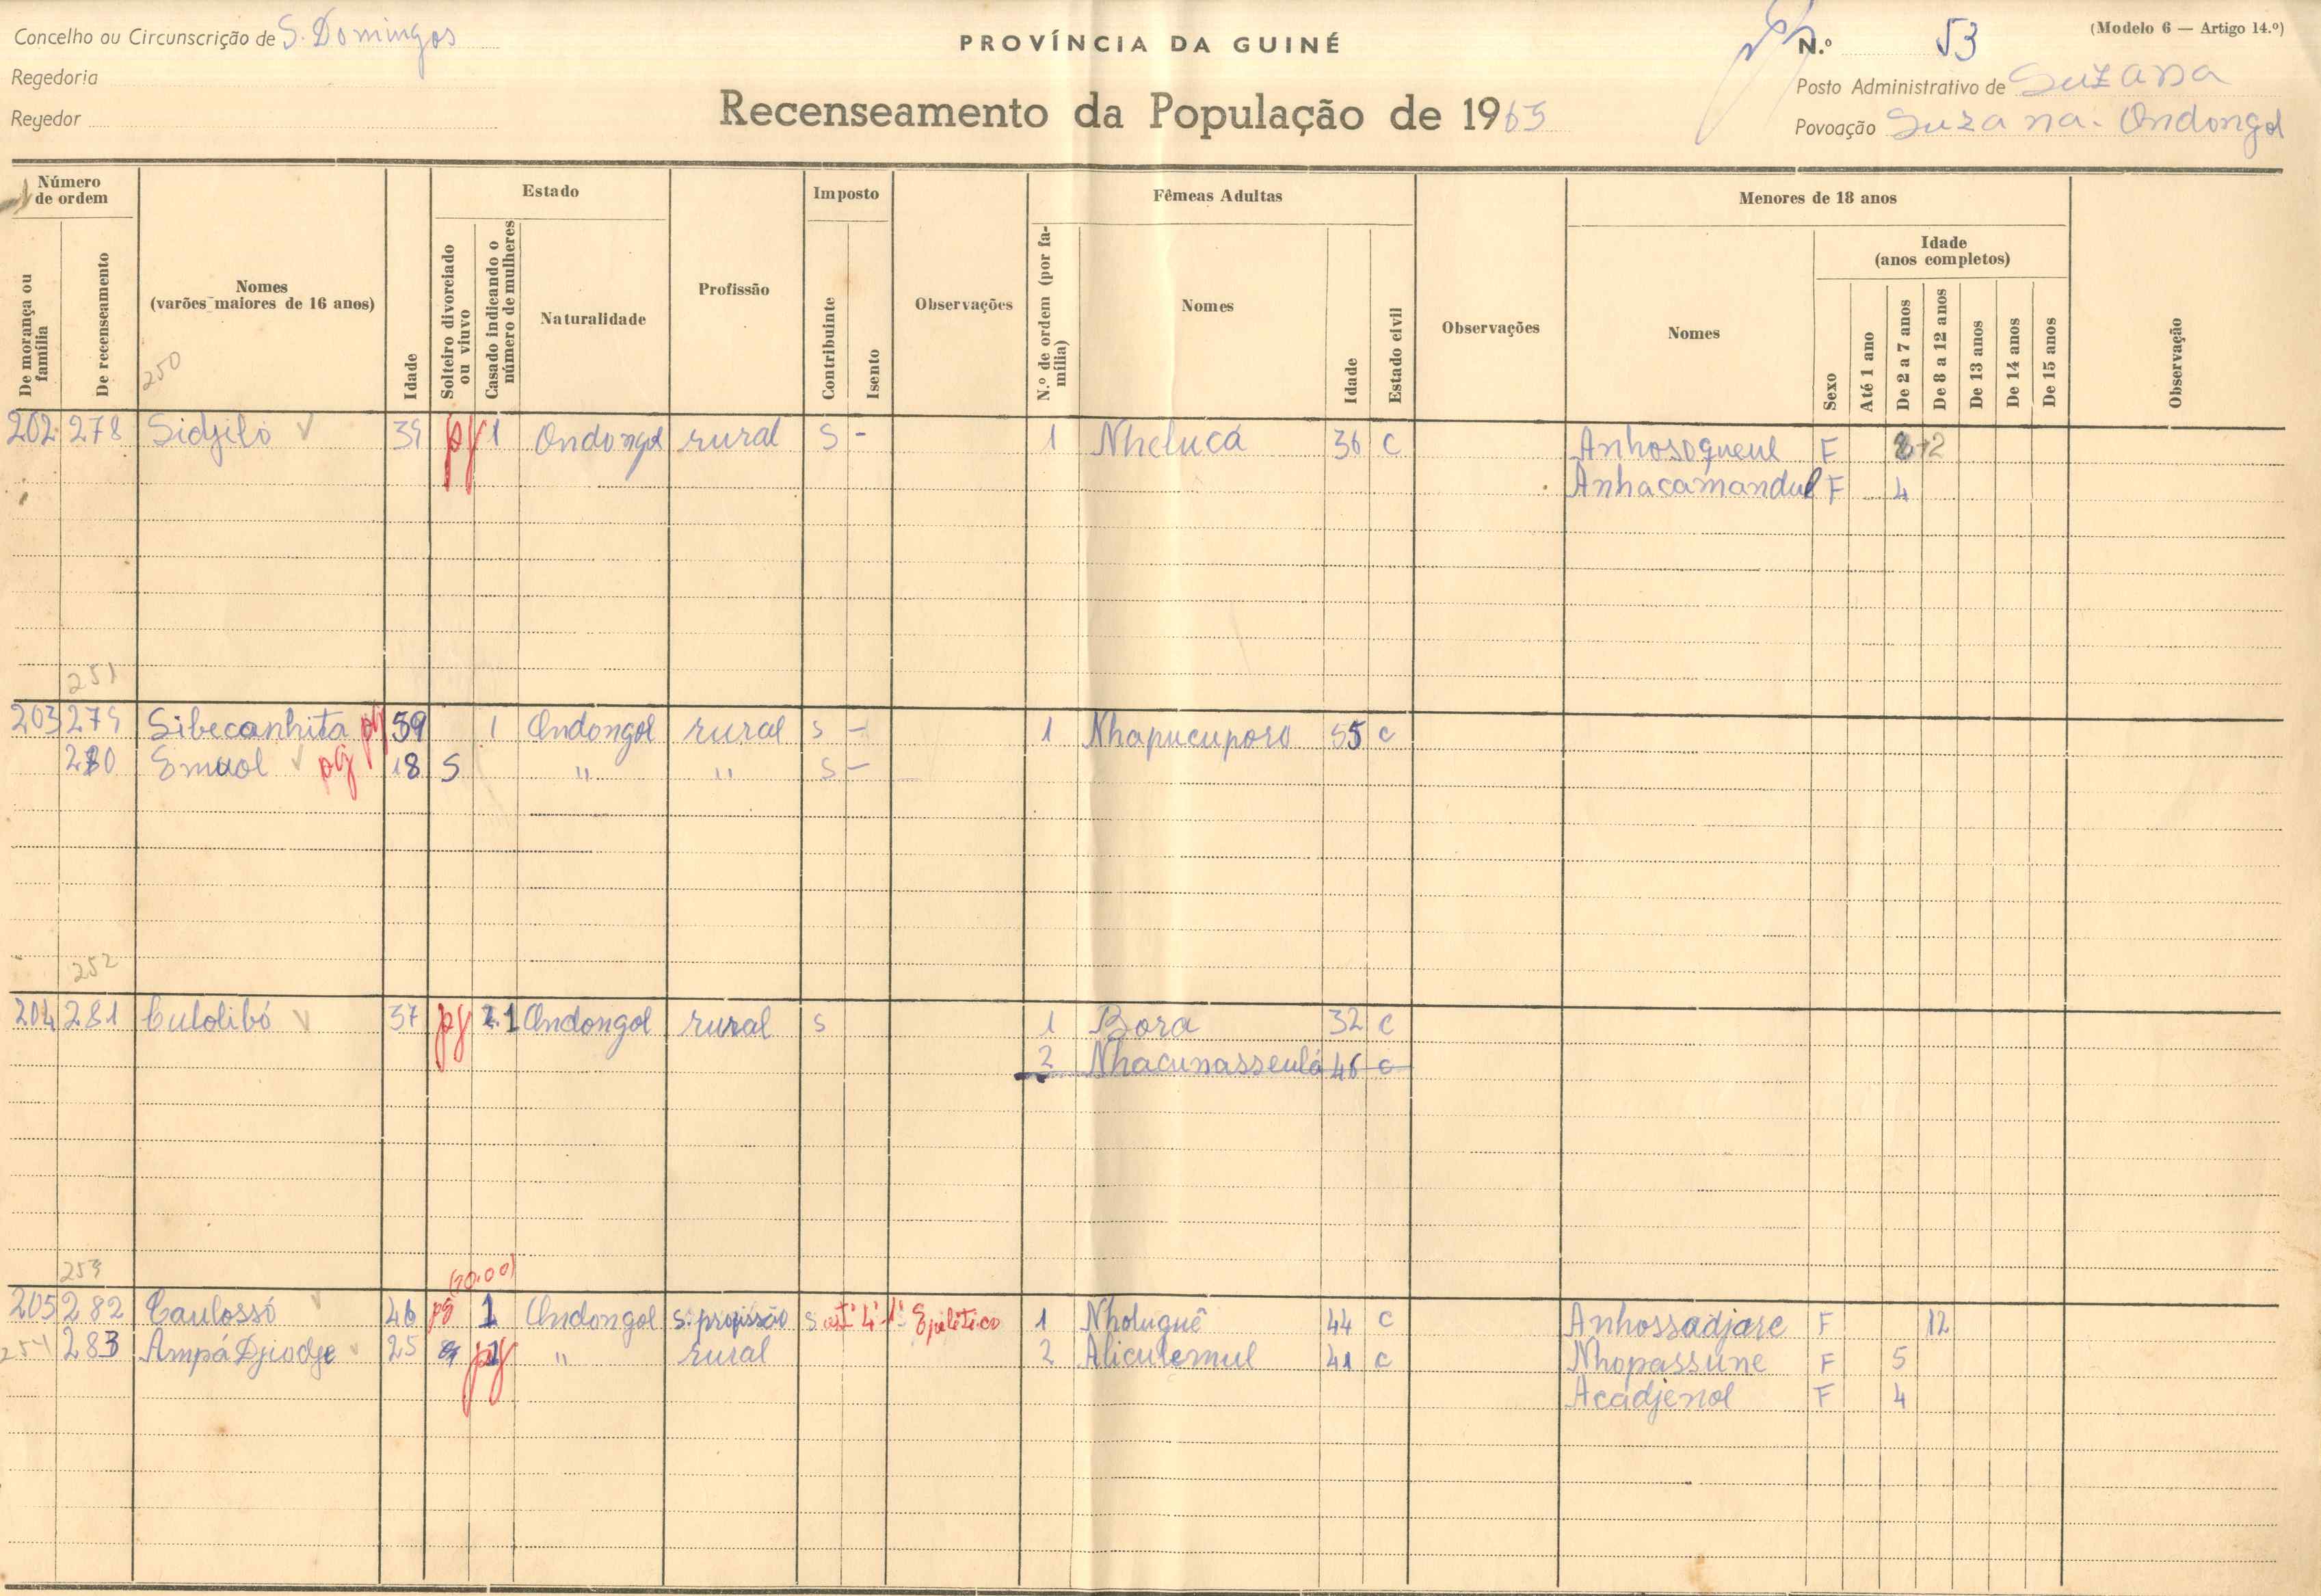 Concelho ou Circunscrição de S. Domingos
PROVÍNCIA DA GUINÉ
N.º 53
(Modelo 6 — Artigo 14.º)
Regedoria
Posto Administrativo de Suzana
Regedor
Recenseamento da População de 1965
Povoação Suzana - Ondongol
Número de ordem
Estado
Imposto
Fêmeas Adultas
Menores de 18 anos
De morança ou família
De recenseamento
Nomes (varões maiores de 16 anos)
Idade
Solteiro divorciado ou viuvo
Casado indicando o número de mulheres
Naturalidade
Profissão
Contribuinte
Isento
Observações
N.º de ordem (por família)
Nomes
Idade
Estado civil
Observações
Nomes
Sexo
Idade (anos completos)
Até 1 ano
De 2 a 7 anos
De 8 a 12 anos
De 13 anos
De 14 anos
De 15 anos
Observação
250
202 278 Sidjiló 39 pg 1 Ondongol rural S - 1 Nhelucá 36 C Anhosoqueul F
Anhacamandul F 4
251
203 279 Sibecanhita pg 59 1 Ondongol rural S - 1 Nhapucuporo 55 C
280 Emuol pg 18 S " " S -
252
204 281 Culolibó 37 pg 1 Ondongol rural S 1 Bora 32 C
2 Nhacunasseulá 46 C
253 (70.00)
205 282 Caulossó 46 pg 1 Ondongol S. profissão S Epilético 1 Nholuguê 44 C Anhossadjare F 12
254 283 Ampá Djiodje 25 pg " rural 2 Aliculemul 41 C Nhopassune F 5
Acadjenol F 4